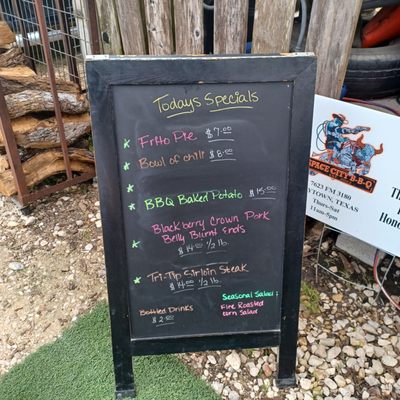 Todays Specials
Frito Pie $7.00
Bowl of chili $8.00
BBQ Baked Potato $15.00
Blackberry Crown Pork
Belly Burnt Ends
$14.00 1/2 lb.
Tri-Tip Sirloin Steak
$14.00 1/2 lb.
Bottled Drinks
$2.00
Seasonal Salad:
Fire Roasted
corn Salad
SPACE CITY B-B-Q
7623 FM 3180
BAYTOWN, TEXAS
Thurs-Sat
11am-8pm